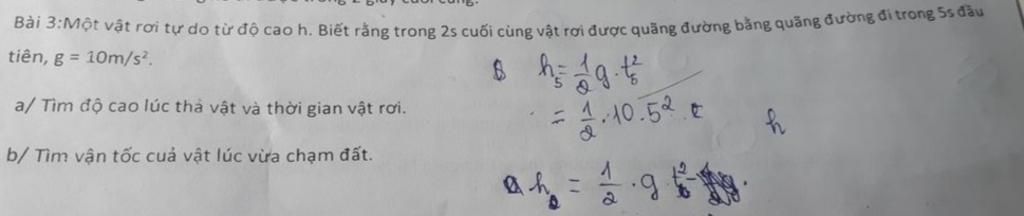 2 giây cuối cùng.
Bài 3:Một vật rơi tự do từ độ cao h. Biết rằng trong 2s cuối cùng vật rơi được quãng đường bằng quãng đường đi trong 5s đầu
tiên, g = 10m/s².
a/ Tìm độ cao lúc thả vật và thời gian vật rơi.
b/ Tìm vận tốc cuả vật lúc vừa chạm đất.
h₅ = 1/2 g . t₅²
= 1/2 . 10 . 5² .
h
h₂ = 1/2 . g